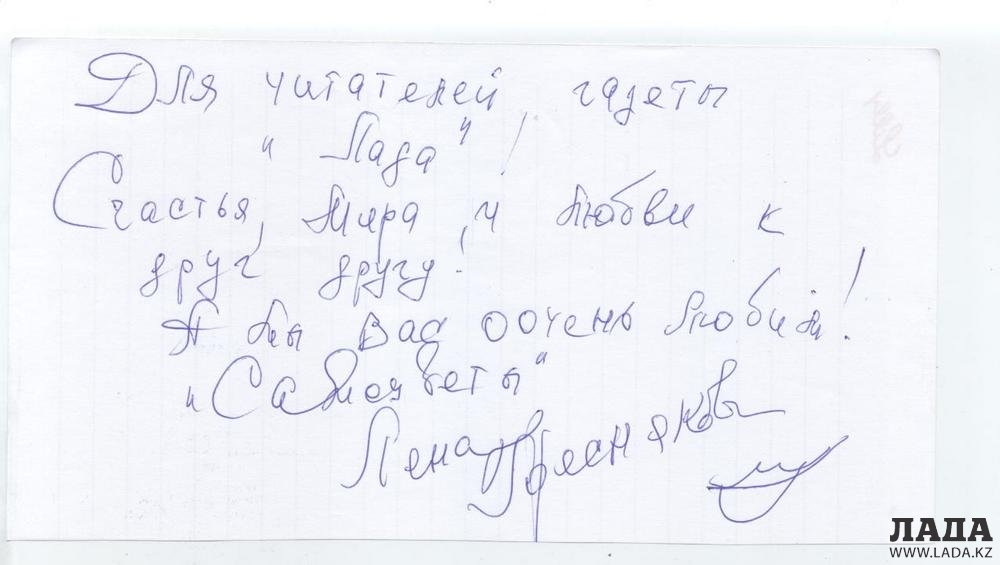 Для читателей газеты
"Лада"!
Счастья, Мира, и Любви к
друг другу!
А мы Вас оочень Любим!
"Самоцветы"
Лена Пресняковы
ЛАДА
WWW.LADA.KZ